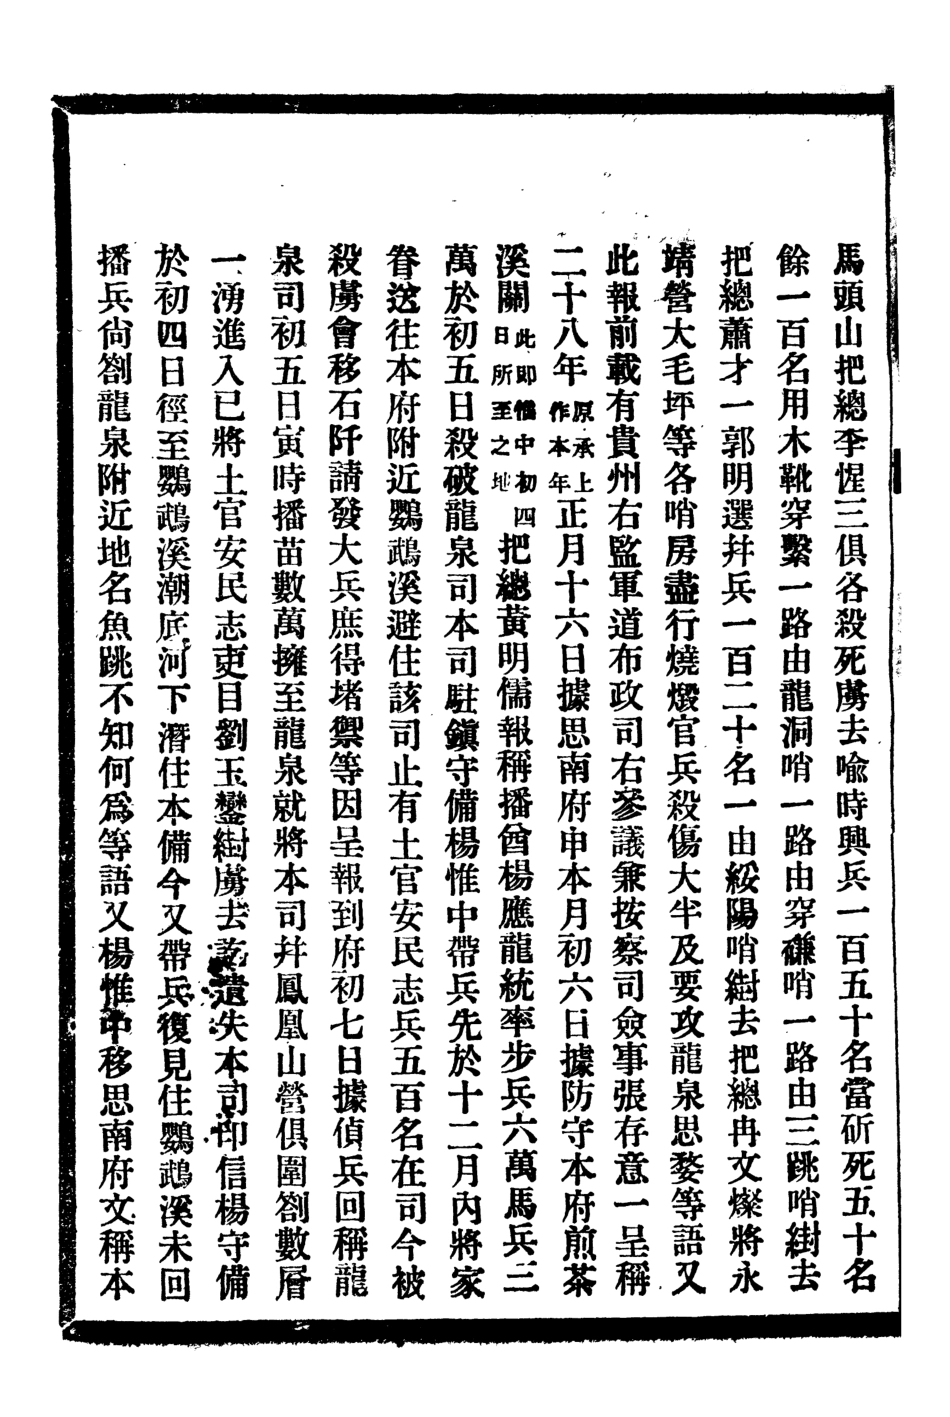 馬頭山把總李惺三俱各殺死虜去喻時興兵一百五十名當斫死五十名
餘一百名用木靴穿繫一路由龍洞哨一路由穿礲哨一路由三跳哨紲去
把總蕭才一郭明選幷兵一百二十名一由綏陽哨紲去把總冉文燦將永
靖營大毛坪等各哨房盡行燒燬官兵殺傷大半及要攻龍泉思婺等語又
此報前載有貴州右監軍道布政司右參議兼按察司僉事張存意一呈稱
二十八年原承上作本年正月十六日據思南府申本月初六日據防守本府煎茶
溪關此即惟中初四日所至之地把總黃明儒報稱播酋楊應龍統率步兵六萬馬兵三
萬於初五日殺破龍泉司本司駐鎭守備楊惟中帶兵先於十二月內將家
眷送往本府附近鸚鵡溪避住該司止有土官安民志兵五百名在司今被
殺虜會移石阡請發大兵庶得堵禦等因呈報到府初七日據偵兵回稱龍
泉司初五日寅時播苗數萬擁至龍泉就將本司幷鳳凰山營俱圍劄數層
一湧進入已將土官安民志吏目劉玉鑾紲虜去訖遺失本司印信楊守備
於初四日徑至鸚鵡溪潮底河下潛住本備今又帶兵復見住鸚鵡溪未回
播兵尙劄龍泉附近地名魚跳不知何爲等語又楊惟中移思南府文稱本